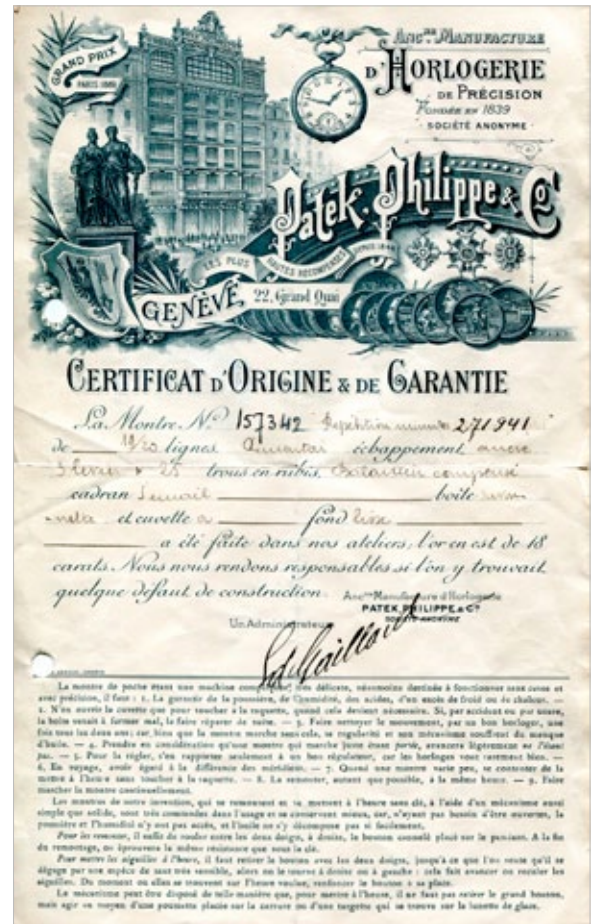 GRAND PRIX
PARIS
ANC^NE MANUFACTURE
D'HORLOGERIE
DE PRÉCISION
FONDÉE EN 1839
SOCIÉTÉ ANONYME
Patek, Philippe & C^o
LES PLUS HAUTES RÉCOMPENSES DEPUIS
GENÈVE, 22, Grand Quai
CERTIFICAT D'ORIGINE & DE GARANTIE
La Montre N° 157342 Répétition minutes 271941
de 19/20 lignes échappement ancre
25 trous en rubis,
cadran boîte
et cuvette fond
a été faite dans nos ateliers; l'or en est de 18
carats. Nous nous rendons responsables si l'on y trouvait
quelque défaut de construction. Anc^ne Manufacture d'Horlogerie
PATEK, PHILIPPE & C^o
SOCIÉTÉ ANONYME
Un Administrateur
La montre de poche étant une machine très délicate, néanmoins destinée à fonctionner sans cesse et
avec précision, il faut : 1. La garantir de la poussière, de l'humidité, des acides, d'un excès de froid ou de chaleur. —
2. N'en ouvrir la cuvette que pour toucher à la raquette, quand cela devient nécessaire. Si, par accident ou par usure,
la boîte venait à fermer mal, la faire réparer de suite. — 3. Faire nettoyer le mouvement, par un bon horloger, une
fois tous les deux ans; car, bien que la montre marche sans cela, sa régularité et son mécanisme souffrent du manque
d'huile. — 4. Prendre en considération qu'une montre qui marche juste étant portée, avancera légèrement ne l'étant
pas. — 5. Pour la régler, s'en rapporter seulement à un bon régulateur, car les horloges vont rarement bien. —
6. En voyage, avoir égard à la différence des méridiens. — 7. Quand une montre varie peu, se contenter de la
mettre à l'heure sans toucher à la raquette. — 8. La remonter, autant que possible, à la même heure. — 9. Faire
marcher la montre continuellement.
Les montres de notre invention, qui se remontent et se mettent à l'heure sans clé, à l'aide d'un mécanisme aussi
simple que solide, sont très commodes dans l'usage et se conservent mieux, car, n'ayant pas besoin d'être ouvertes, la
poussière et l'humidité n'y ont pas accès, et l'huile ne s'y décompose pas si facilement.
Pour les remonter, il suffit de rouler entre les deux doigts, à droite, le bouton cannelé placé sur le pendant. A la fin
du remontage, on éprouvera la même résistance que sous la clé.
Pour mettre les aiguilles à l'heure, il faut retirer le bouton avec les deux doigts, jusqu'à ce que l'on sente qu'il se
dégage par une espèce de saut très sensible, alors on le tourne à droite ou à gauche : cela fait avancer ou reculer les
aiguilles. Du moment où elles se trouvent sur l'heure voulue, renfoncer le bouton à sa place.
Le mécanisme peut être disposé de telle manière que, pour mettre à l'heure, il ne faut pas retirer le grand bouton,
mais agir au moyen d'une poussette placée sur la carrure ou d'une targette qui se trouve sur la lunette de glace.